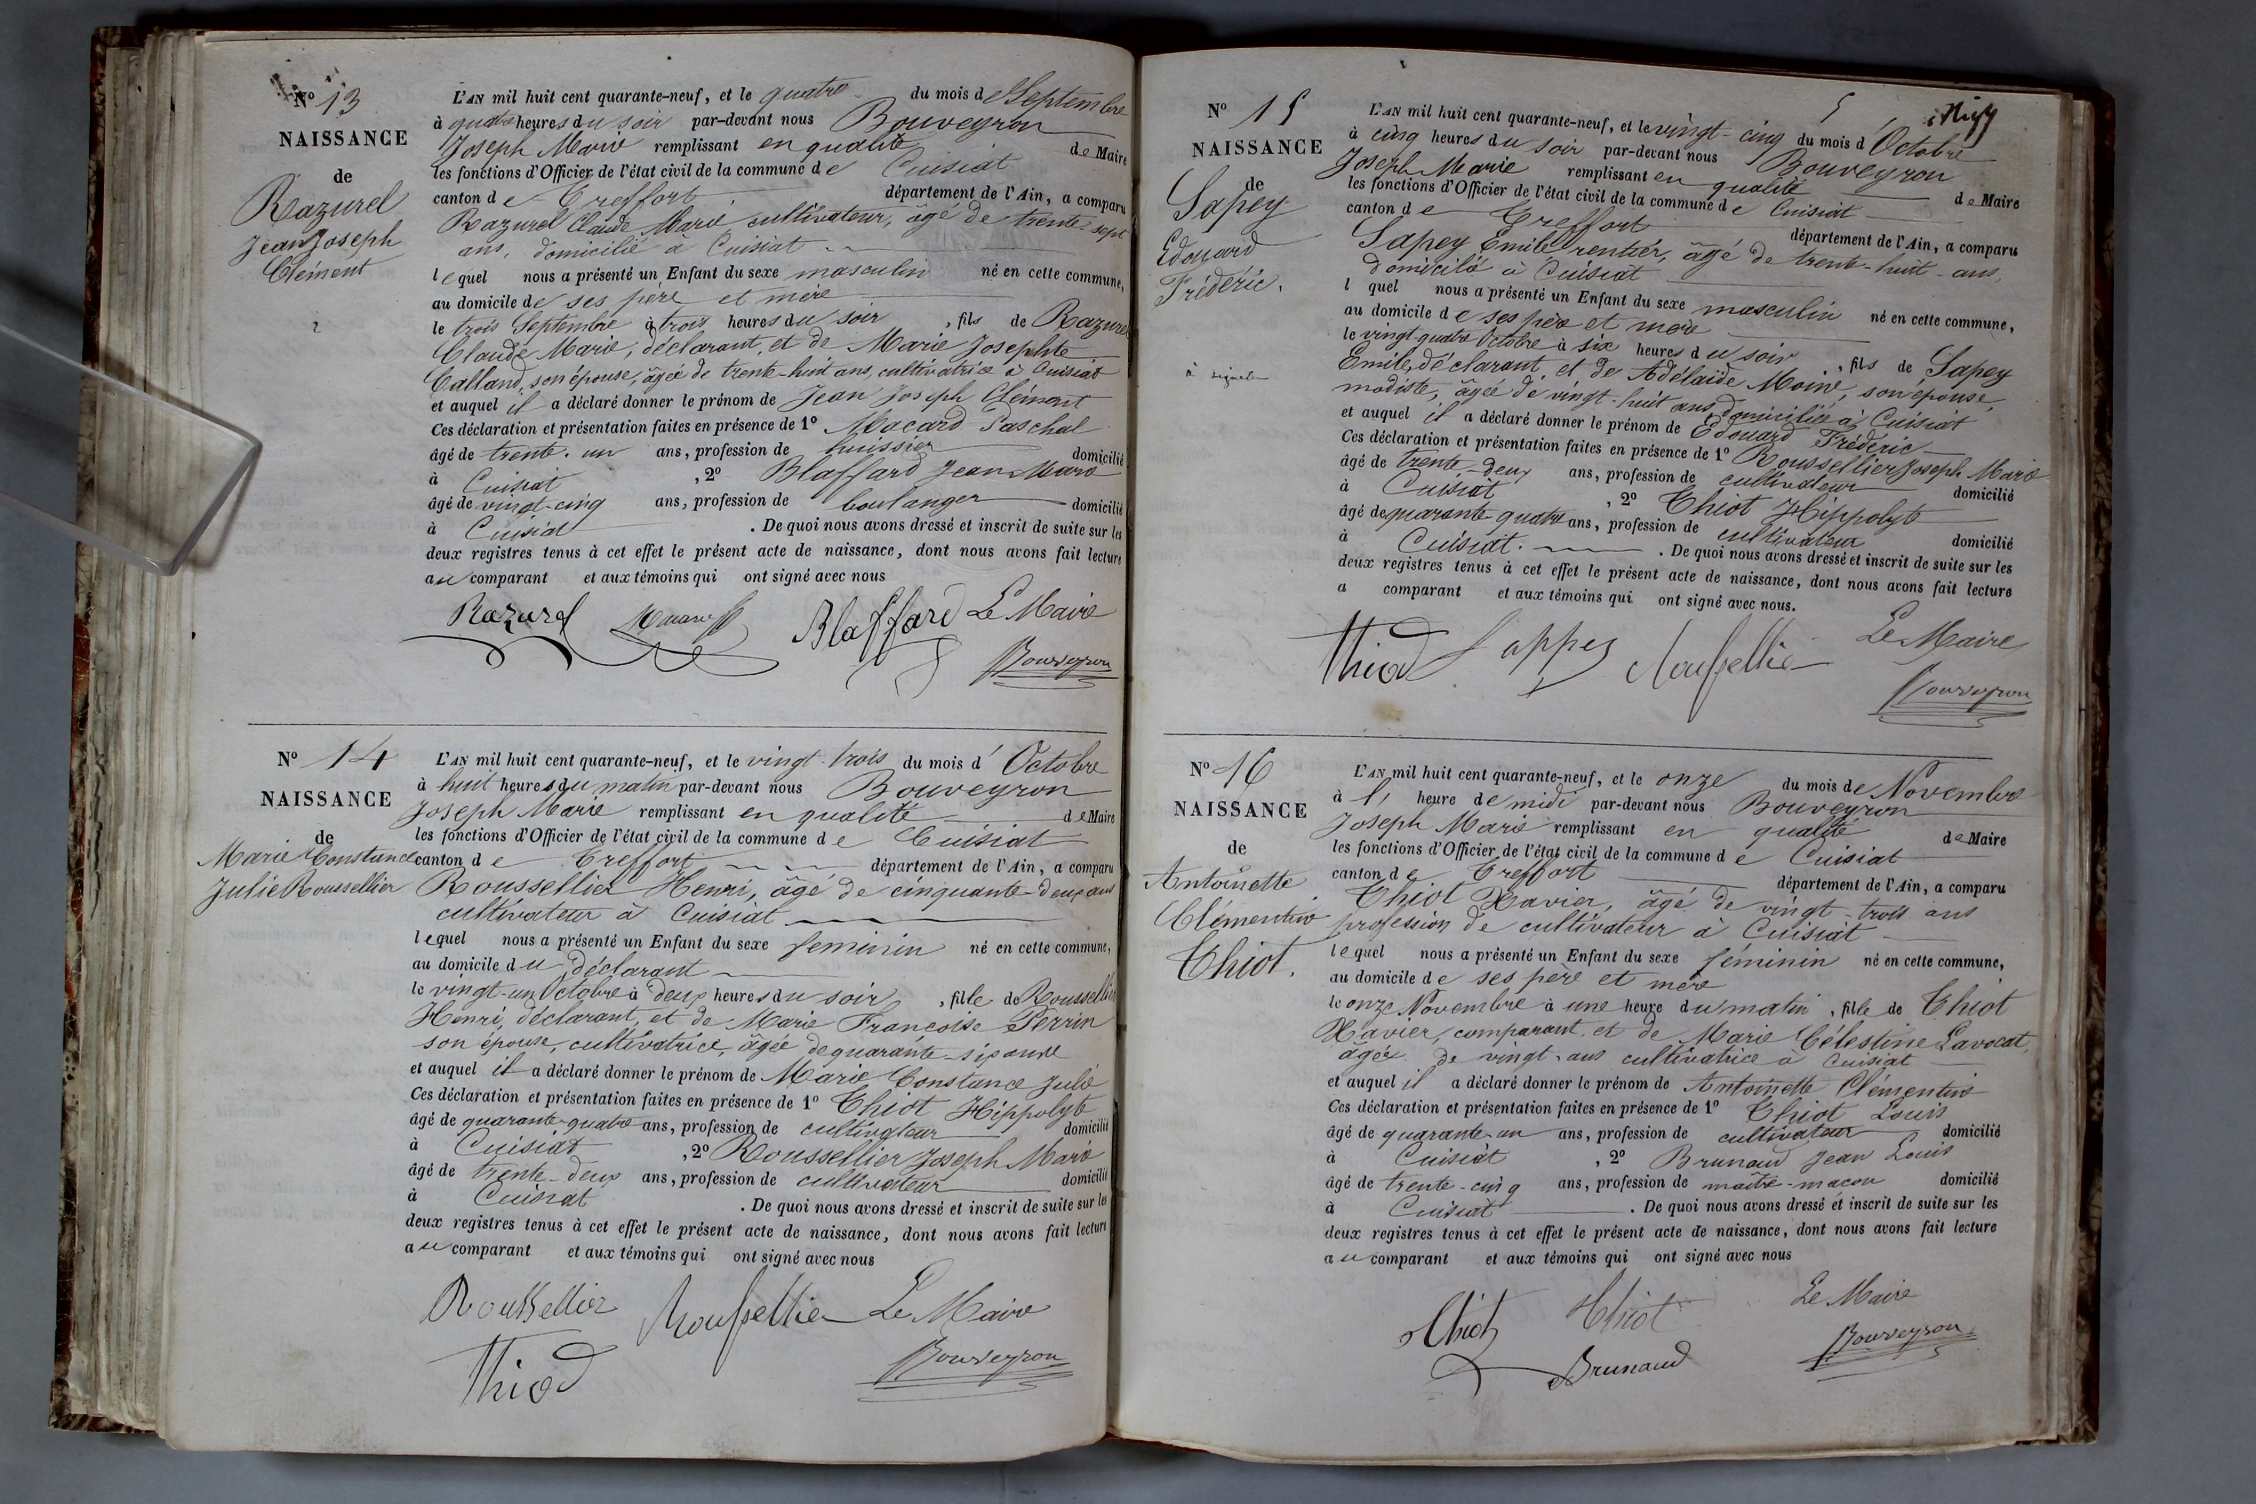 Nº 13
NAISSANCE
de
Razurel
Jean Joseph
Clément
L'AN mil huit cent quarante-neuf, et le quatre du mois de Septembre
à quatre heures du soir par-devant nous Bouveyron
Joseph Marie remplissant en qualité de Maire
les fonctions d'Officier de l'état civil de la commune de Cuisiat
canton de Treffort département de l'Ain, a comparu
Razurel Claude Marie, cultivateur, âgé de trente-sept
ans, domicilié à Cuisiat
lequel nous a présenté un Enfant du sexe masculin né en cette commune,
au domicile de ses père et mère
le trois Septembre à trois heures du soir, fils de Razurel
Claude Marie, déclarant, et de Marie Josephte
Calland, son épouse, âgée de trente-huit ans, cultivatrice à Cuisiat
et auquel il a déclaré donner le prénom de Jean Joseph Clément
Ces déclaration et présentation faites en présence de 1º Macard Paschal
âgé de trente-un ans, profession de huissier domicilié
à Cuisiat, 2º Blaffard Jean Marie
âgé de vingt-cinq ans, profession de boulanger domicilié
à Cuisiat. De quoi nous avons dressé et inscrit de suite sur les
deux registres tenus à cet effet le présent acte de naissance, dont nous avons fait lecture
au comparant et aux témoins qui ont signé avec nous
Razurel Blaffard Le Maire
Bouveyron
Nº 14
NAISSANCE
de
Marie Constance
Julie Roussellier
L'AN mil huit cent quarante-neuf, et le vingt-trois du mois d'Octobre
à huit heures du matin par-devant nous Bouveyron
Joseph Marie remplissant en qualité de Maire
les fonctions d'Officier de l'état civil de la commune de Cuisiat
canton de Treffort département de l'Ain, a comparu
Roussellier Henri, âgé de cinquante-deux ans
cultivateur à Cuisiat
lequel nous a présenté un Enfant du sexe féminin né en cette commune,
au domicile du déclarant
le vingt-un Octobre à deux heures du soir, fille de Roussellier
Henri, déclarant, et de Marie Françoise Perrin
son épouse, cultivatrice, âgée de quarante-six ans
et auquel il a déclaré donner le prénom de Marie Constance Julie
Ces déclaration et présentation faites en présence de 1º Thiot Hippolyte
âgé de quarante-quatre ans, profession de cultivateur domicilié
à Cuisiat, 2º Roussellier Joseph Marie
âgé de trente-deux ans, profession de cultivateur domicilié
à Cuisiat. De quoi nous avons dressé et inscrit de suite sur les
deux registres tenus à cet effet le présent acte de naissance, dont nous avons fait lecture
au comparant et aux témoins qui ont signé avec nous
Roussellier Roussellier Le Maire
Thiod Bouveyron
Nº 15
NAISSANCE
de
Sapey
Edouard
Fréderic.
L'AN mil huit cent quarante-neuf, et le vingt-cinq du mois d'Octobre
à cinq heures du soir par-devant nous Bouveyron
Joseph Marie remplissant en qualité de Maire
les fonctions d'Officier de l'état civil de la commune de Cuisiat
canton de Treffort département de l'Ain, a comparu
Sapey Emile rentier, âgé de trente-huit ans,
domicilié à Cuisiat
l quel nous a présenté un Enfant du sexe masculin né en cette commune,
au domicile de ses père et mère
le vingt-quatre Octobre à six heures du soir, fils de Sapey
Emile, déclarant, et de Adélaïde Moine, son épouse,
modiste, âgée de vingt-huit ans domiciliée à Cuisiat
et auquel il a déclaré donner le prénom de Edouard Fréderic
Ces déclaration et présentation faites en présence de 1º Roussellier Joseph Marie
âgé de trente-deux ans, profession de cultivateur domicilié
à Cuisiat, 2º Thiot Hippolyte
âgé de quarante quatre ans, profession de cultivateur domicilié
à Cuisiat. De quoi nous avons dressé et inscrit de suite sur les
deux registres tenus à cet effet le présent acte de naissance, dont nous avons fait lecture
a comparant et aux témoins qui ont signé avec nous.
Thiod Sappey Roussellier Le Maire
Bouveyron
Nº 16
NAISSANCE
de
Antoinette
Clémentine
Thiot.
L'AN mil huit cent quarante-neuf, et le onze du mois de Novembre
à l' heure de midi par-devant nous Bouveyron
Joseph Marie remplissant en qualité de Maire
les fonctions d'Officier de l'état civil de la commune de Cuisiat
canton de Treffort département de l'Ain, a comparu
Thiot Xavier, âgé de vingt-trois ans
profession de cultivateur à Cuisiat
lequel nous a présenté un Enfant du sexe féminin né en cette commune,
au domicile de ses père et mère
le onze Novembre à une heure du matin, fille de Thiot
Xavier, comparant et de Marie Célestine Lavocat,
âgée de vingt ans cultivatrice à Cuisiat
et auquel il a déclaré donner le prénom de Antoinette Clémentine
Ces déclaration et présentation faites en présence de 1º Thiot Louis
âgé de quarante-un ans, profession de cultivateur domicilié
à Cuisiat, 2º Brunaud Jean Louis
âgé de trente-cinq ans, profession de maître-maçon domicilié
à Cuisiat. De quoi nous avons dressé et inscrit de suite sur les
deux registres tenus à cet effet le présent acte de naissance, dont nous avons fait lecture
au comparant et aux témoins qui ont signé avec nous
Thiot Thiot Le Maire
Brunaud Bouveyron